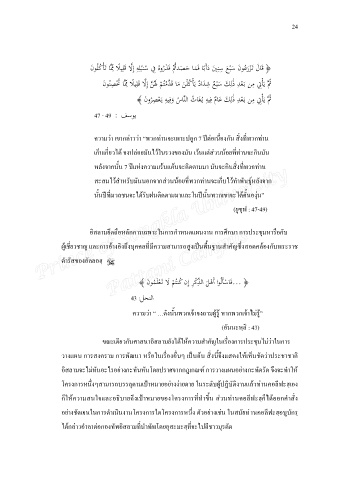 24
﴿ قَالَ تَزْرَعُونَ سَبْعَ سِنِينَ دَأَبًا فَمَا حَصَدتُّمْ فَذَرُوهُ فِي سُنبُلِهِ إِلَّا قَلِيلًا مِّمَّا تَأْكُلُونَ
ثُمَّ يَأْتِي مِن بَعْدِ ذَٰلِكَ سَبْعٌ شِدَادٌ يَأْكُلْنَ مَا قَدَّمْتُمْ لَهُنَّ إِلَّا قَلِيلًا مِّمَّا تُحْصِنُونَ
ثُمَّ يَأْتِي مِن بَعْدِ ذَٰلِكَ عَامٌ فِيهِ يُغَاثُ النَّاسُ وَفِيهِ يَعْصِرُونَ ﴾
يوسف : 49 - 47
ความว่า เขากล่าวว่า “พวกท่านจะเพาะปลูก 7 ปีต่อเนื่องกัน สิ่งที่พวกท่าน
เก็บเกี่ยวได้ จงปล่อยมันไว้ในรวงของมัน เว้นแต่ส่วนน้อยที่พวกท่านจะกินมัน
หลังจากนั้น 7 ปีแห่งความแร้นแค้นจะติดตามมา มันจะกินสิ่งที่พวกท่าน
สะสมไว้สำหรับมันนอกจากส่วนน้อยที่พวกท่านจะเก็บไว้ทำพันธุ์หลังจาก
นั้นปีที่มาชนจะได้รับฝนติดตามมาและในปีนั้นพวกเขาจะได้คั้นองุ่น”
(ยูซุฟ : 47-49)
อิสลามยึดถือหลักการเฉพาะในการกำหนดแผนงาน การศึกษา การประชุมหารือกับ
ผู้เชี่ยวชาญ และการอ้างอิงถึงบุคคลที่มีความสามารถสูงเป็นพื้นฐานสำคัญซึ่งสอดคล้องกับพระราช
ดำรัสของอัลลอฮฺ
﴿ ...فَاسْأَلُوا أَهْلَ الذِّكْرِ إِن كُنتُمْ لَا تَعْلَمُونَ ﴾
النحل: 43
ความว่า “ …ดังนั้นพวกเจ้าจงถามผู้รู้ หากพวกเจ้าไม่รู้”
(อันนะหฺลุ : 43)
ขณะเดียวกันศาสนาอิสลามยังได้ให้ความสำคัญในเรื่องการประชุมไม่ว่าในการ
วางแผน การสงคราม การพัฒนา หรือในเรื่องอื่นๆ เป็นต้น สิ่งนี้จึงแสดงให้เห็นชัดว่าประชาชาติ
อิสลามจะไม่ทำอะไรอย่างกะทันหันโดยปราศจากกฎเกณฑ์ การวางแผนอย่างกะทัดรัด จึงจะทำให้
โครงการหนึ่งๆสามารถบรรลุตามเป้าหมายอย่างง่ายดาย ในระดับผู้ปฏิบัติงานแล้วท่านเคาะลีฟะฮฺเอง
ก็ให้ความสนใจและอธิบายถึงเป้าหมายของโครงการที่ทำขึ้น ส่วนท่านเคาะลีฟะฮฺก็ได้ออกคำสั่ง
อย่างชัดเจนในการดำเนินงานโครงการใดโครงการหนึ่ง ตัวอย่างเช่น ในสมัยท่านเคาะลีฟะฮฺอบูบักรฺ
ได้กล่าวอำลาต่อกองทัพอิสลามที่นำทัพโดยอุสามะฮฺที่จะไปตีชาวมุรตัด